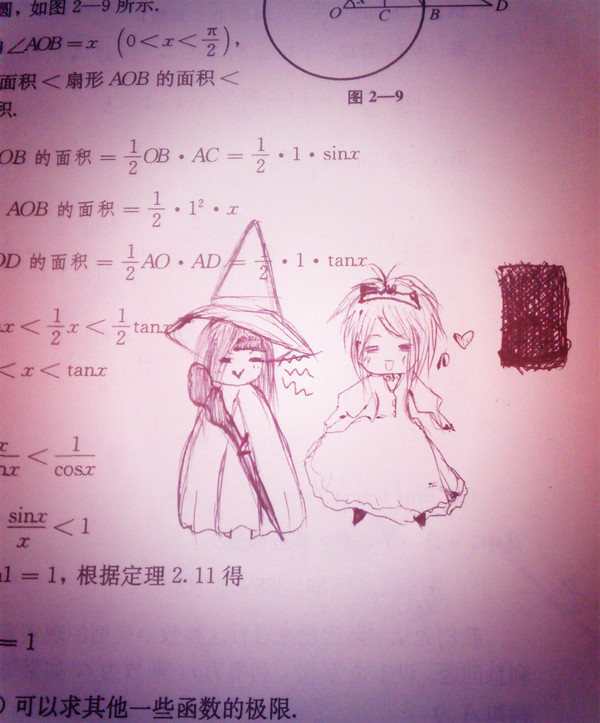 圆, 如图 2—9 所示.
O x C B D
∠AOB=x (0<x<π/2),
面积<扇形 AOB 的面积<
积.
图 2—9
OB 的面积=1/2OB·AC=1/2·1·sinx
AOB 的面积=1/2·1²·x
OD 的面积=1/2AO·AD=1/2·1·tanx
x<1/2x<1/2tanx
<x<tanx
x/nx<1/cosx
sinx/x<1
1=1, 根据定理 2.11 得
=1
) 可以求其他一些函数的极限.